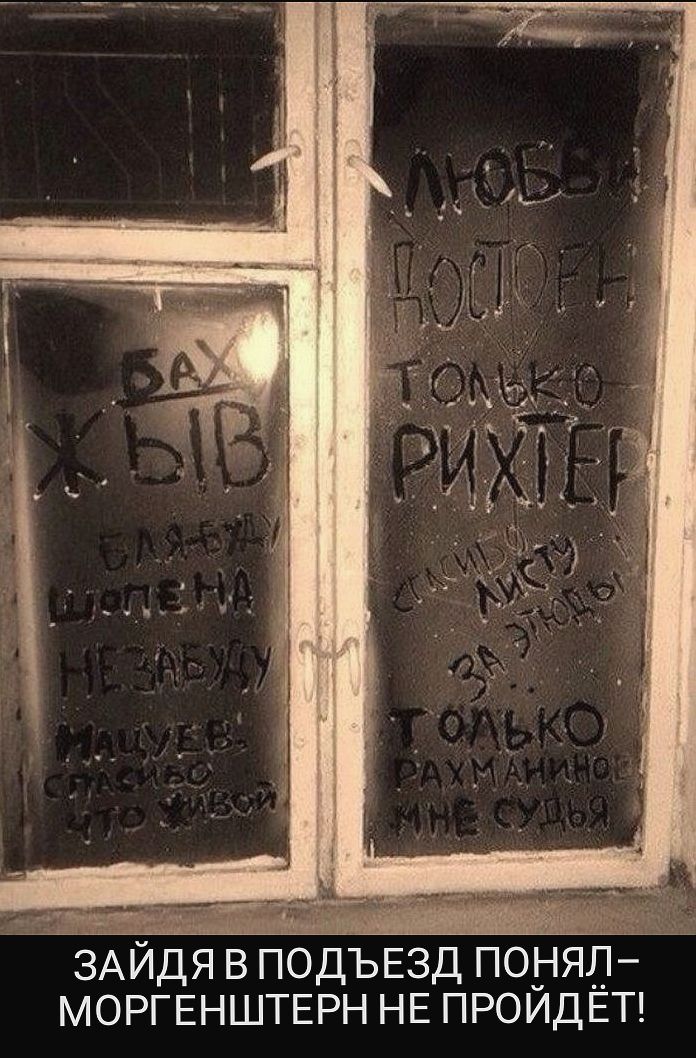 БАХ
ЖЫВ
БЛЯ-БУДУ
ШОПЕНА
НЕ ЗАБУДУ
МАЦУЕВ:
СПАСИБО
ЧТО ЖИВОЙ
ЛЮБВИ
ДОСТОЕН
ТОЛЬКО
РИХТЕР
СПАСИБО
ЛИСТУ
ЗА ЭТЮДЫ
ТОЛЬКО
РАХМАНИНОВ
МНЕ СУДЬЯ
ЗАЙДЯ В ПОДЪЕЗД ПОНЯЛ–
МОРГЕНШТЕРН НЕ ПРОЙДЁТ!